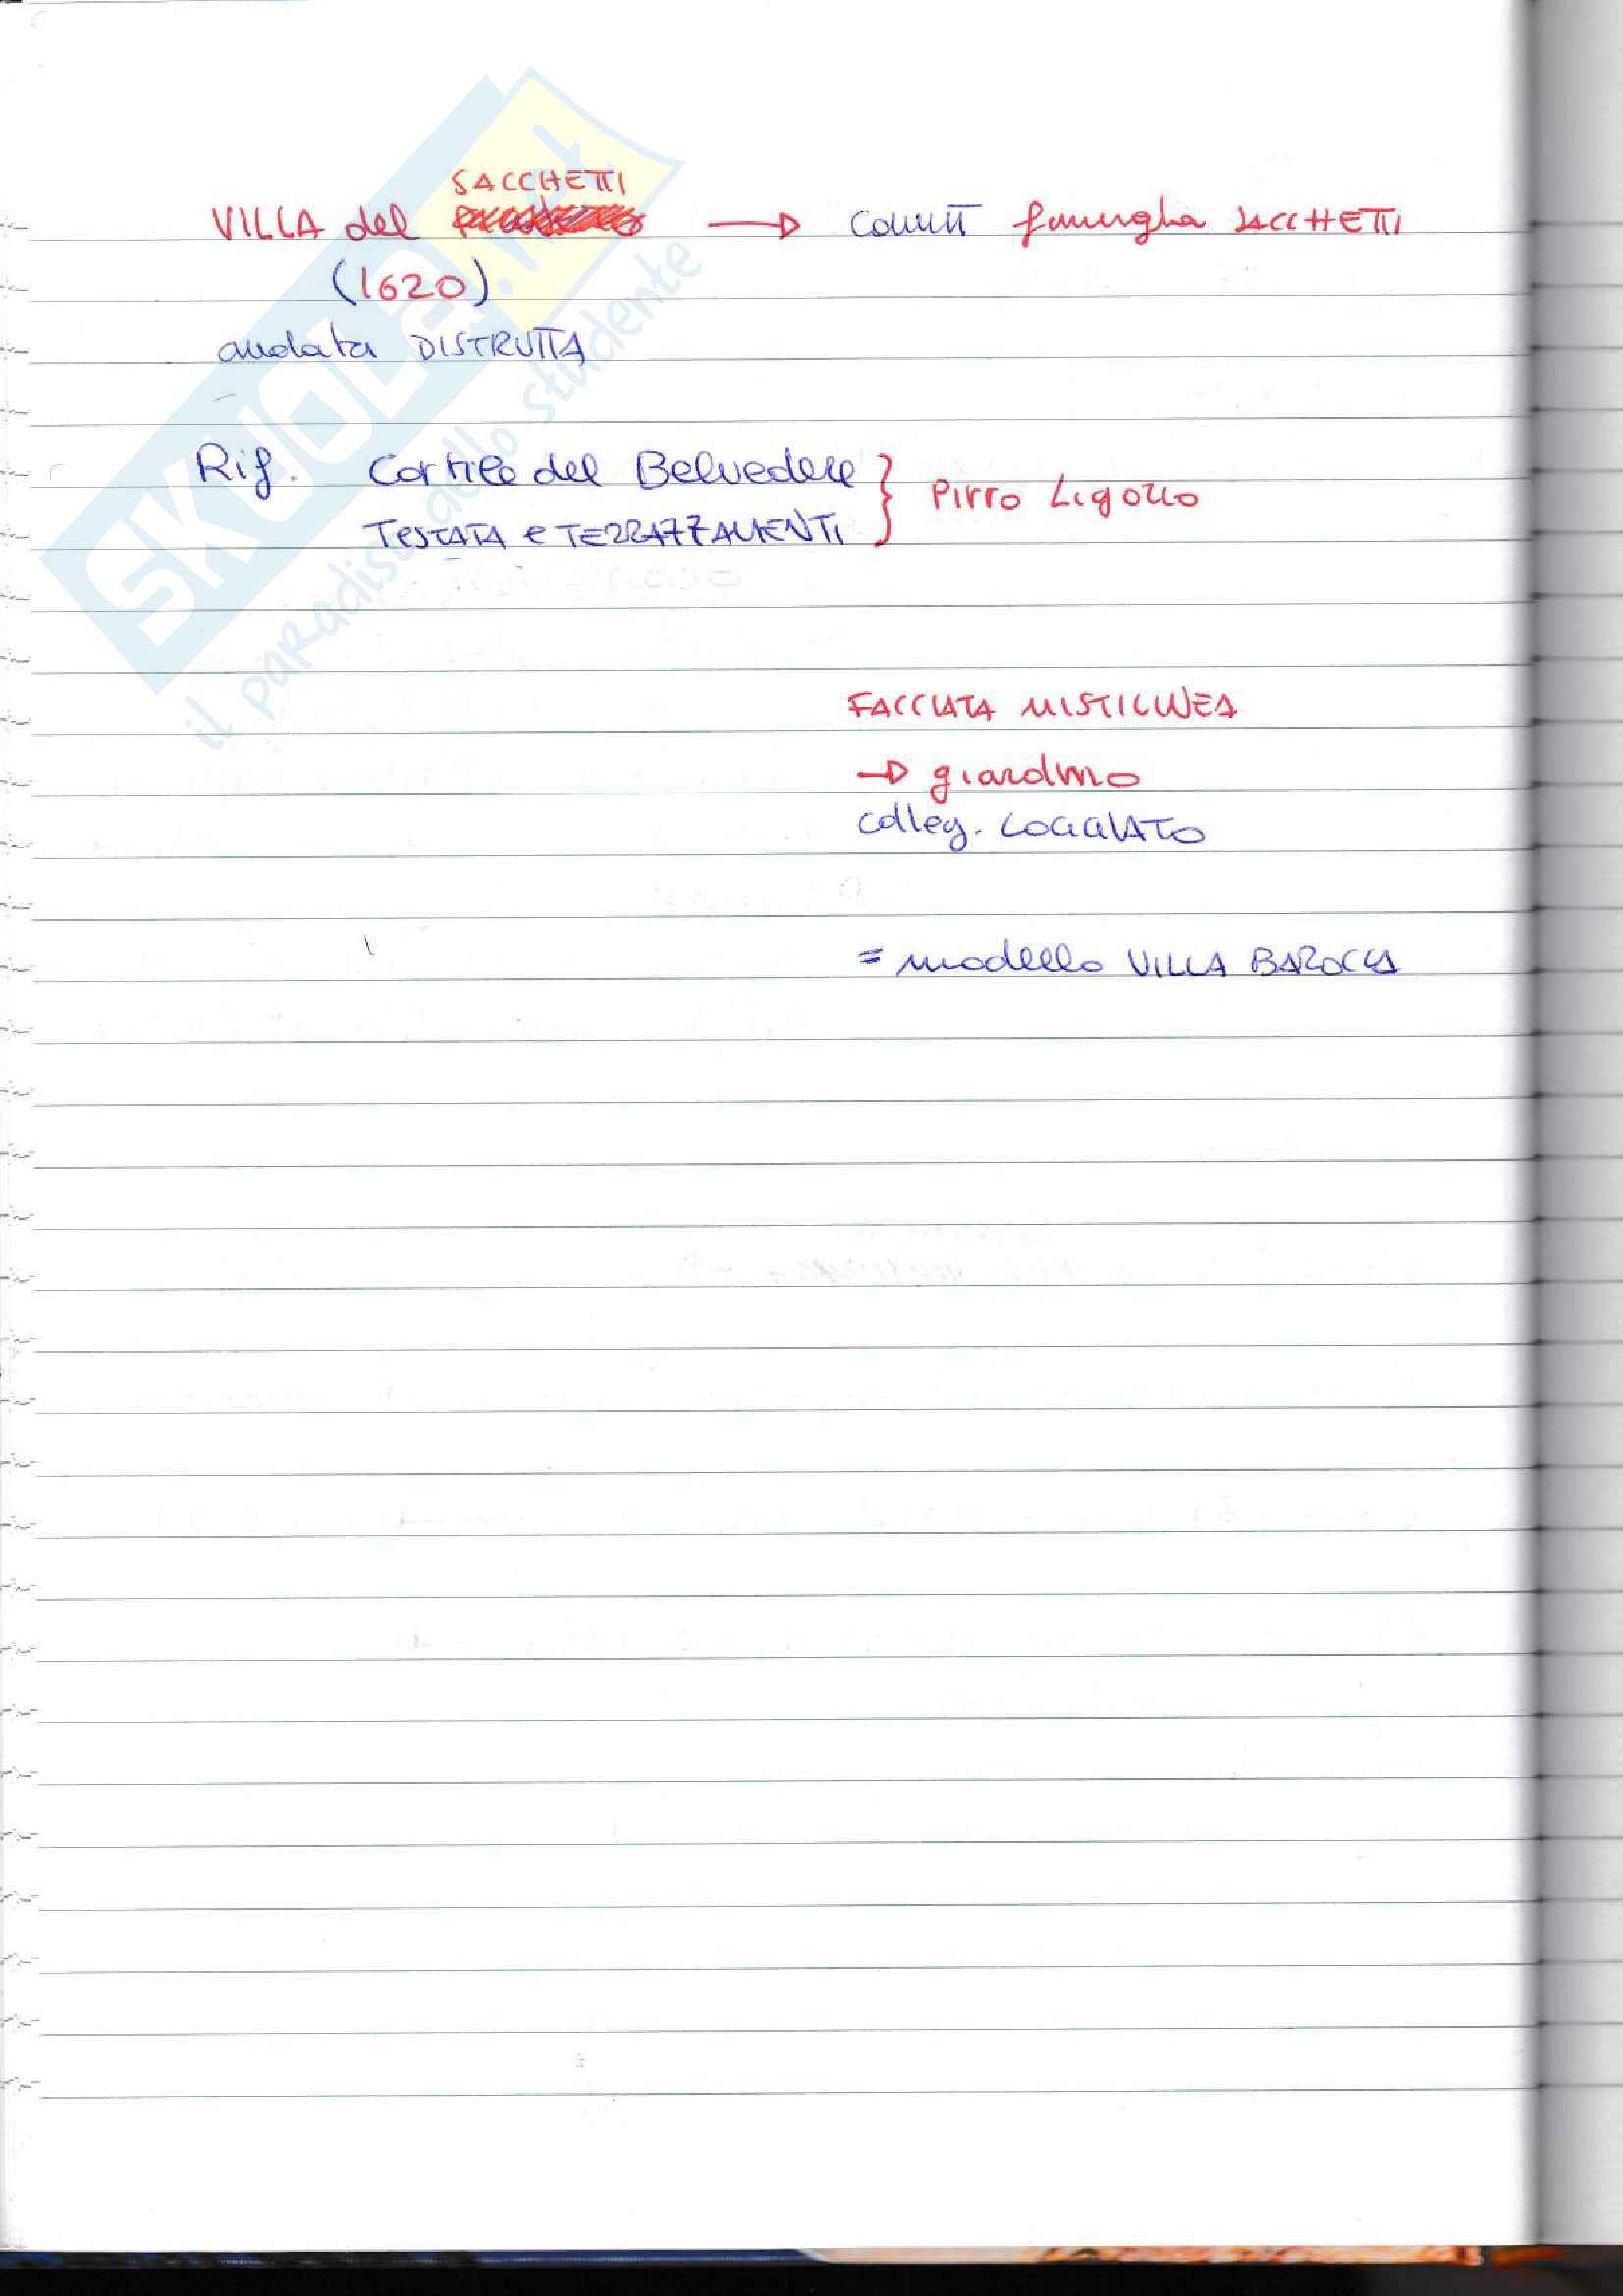 SACCHETTI
VILLA del → comitt famiglia SACCHETTI
(1620)
andata DISTRUTTA
Rif. Cortile del Belvedere
TESTATA e TERRAZZAMENTI } Pirro Ligorio
FACCIATA MISTILINEA
→ giardino
colleg. LOGGIATO
= modello VILLA BAROCCA
SKUOLA.net
il paradiso dello studente